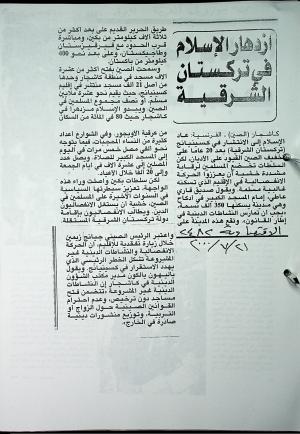 ازدهار الإسلام
في تركستان
الشرقية
كاشجار (الصين) ـ الفرنسية: عاد
الإسلام إلى الانتشار في كسينيانج
(تركستان الشرقية) بعد ٢٠ عاما على
تخفيف الصين القيود على الأديان لكن
سلطات تخضع المسلمين لرقابة
مشددة خشية أن يعززوا الحركة
الانفصالية في الإقليم الذي تسكنه
غالبية مسلمة ويقول صديق قاري
حاجي، إمام المسجد الكبير في ايدكاه
وهي مدينة يسكنها ٣٥٠ ألف نسمة،
يجب أن تمارس النشاطات الدينية في
إطار القانون». وتقع هذه المدينة على
طريق الحرير القديم على بعد أكثر من
ثلاثة آلاف كيلومتر من بكين، ومباشرة
قرب الحدود مع قيرغيزستان
وطاجيكستان، وعلى بعد نحو ٤٠٠
كيلومتر من باكستان.
وسمحت الصين بفتح أكثر من عشرة
آلاف مسجد في منطقة كاشجار وحدها
من أصل ٢١ ألف مسجد تنتشر في إقليم
كسينيانج، حيث يقيم نحو عشرة ملايين
مسلم، أو نصف مجموع المسلمين في
الصين. ويبدو الإسلام مزدهرا في
كاشجار حيث ٨٠ في المائة من السكان
من عرقية الأويجور. وفي الشوارع أعداد
كثيرة من النساء المحجبات، فيما يتوجه
نحو ألفي مصل خمس مرات في اليوم
إلى المسجد الكبير للصلاة. ويصل عدد
المصلين إلى عشرة آلاف في أيام الجمعة
وإلى ٢٠ ألفا خلال الأعياد.
لكن سلطات بكين وأضحت وراء هذه
الواجهة، تعزيز سيطرتها السياسية
في السنوات الأخيرة على المسلمين في
الصين، خشية أن يستغل الانفصاليون
الدين. ويطالب الانفصاليون بإقامة
دولة تركستان الشرقية المستقلة.
واعتبر الرئيس الصيني جيانج زيمين
خلال زيارة تفقدية للإقليم، أن الحركة
الانفصالية والنشاطات الدينية غير
المشروعة تشكل الخطر الرئيسي الذي
يهدد الاستقرار في كسينيانج. ويقول
ياليهون ياكون مدير مكتب الشؤون
الدينية في كاشجار إن النشاطات
الدينية غير المشروعة «تتضمن فتح
مساجد دون ترخيص، وعدم احترام
القوانين الصينية حول الزواج أو
التربية، وتوزيع منشورات دينية
صادرة في الخارج».
الاقتصادية ٢٤٨٢
٢٠٠٠/٧/٢١